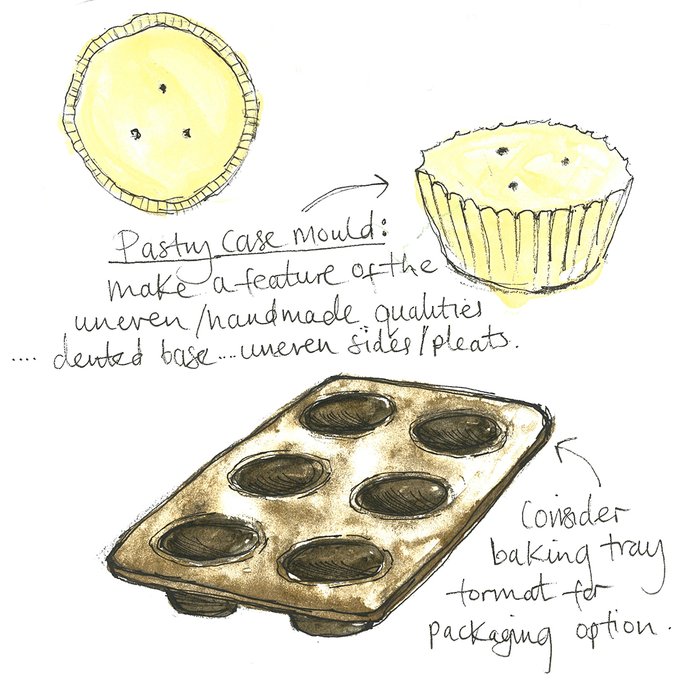 Pastry case mould:
make a feature of the
uneven/handmade qualities
.... dented base...uneven sides/pleats.
Consider
baking tray
format for
packaging option.